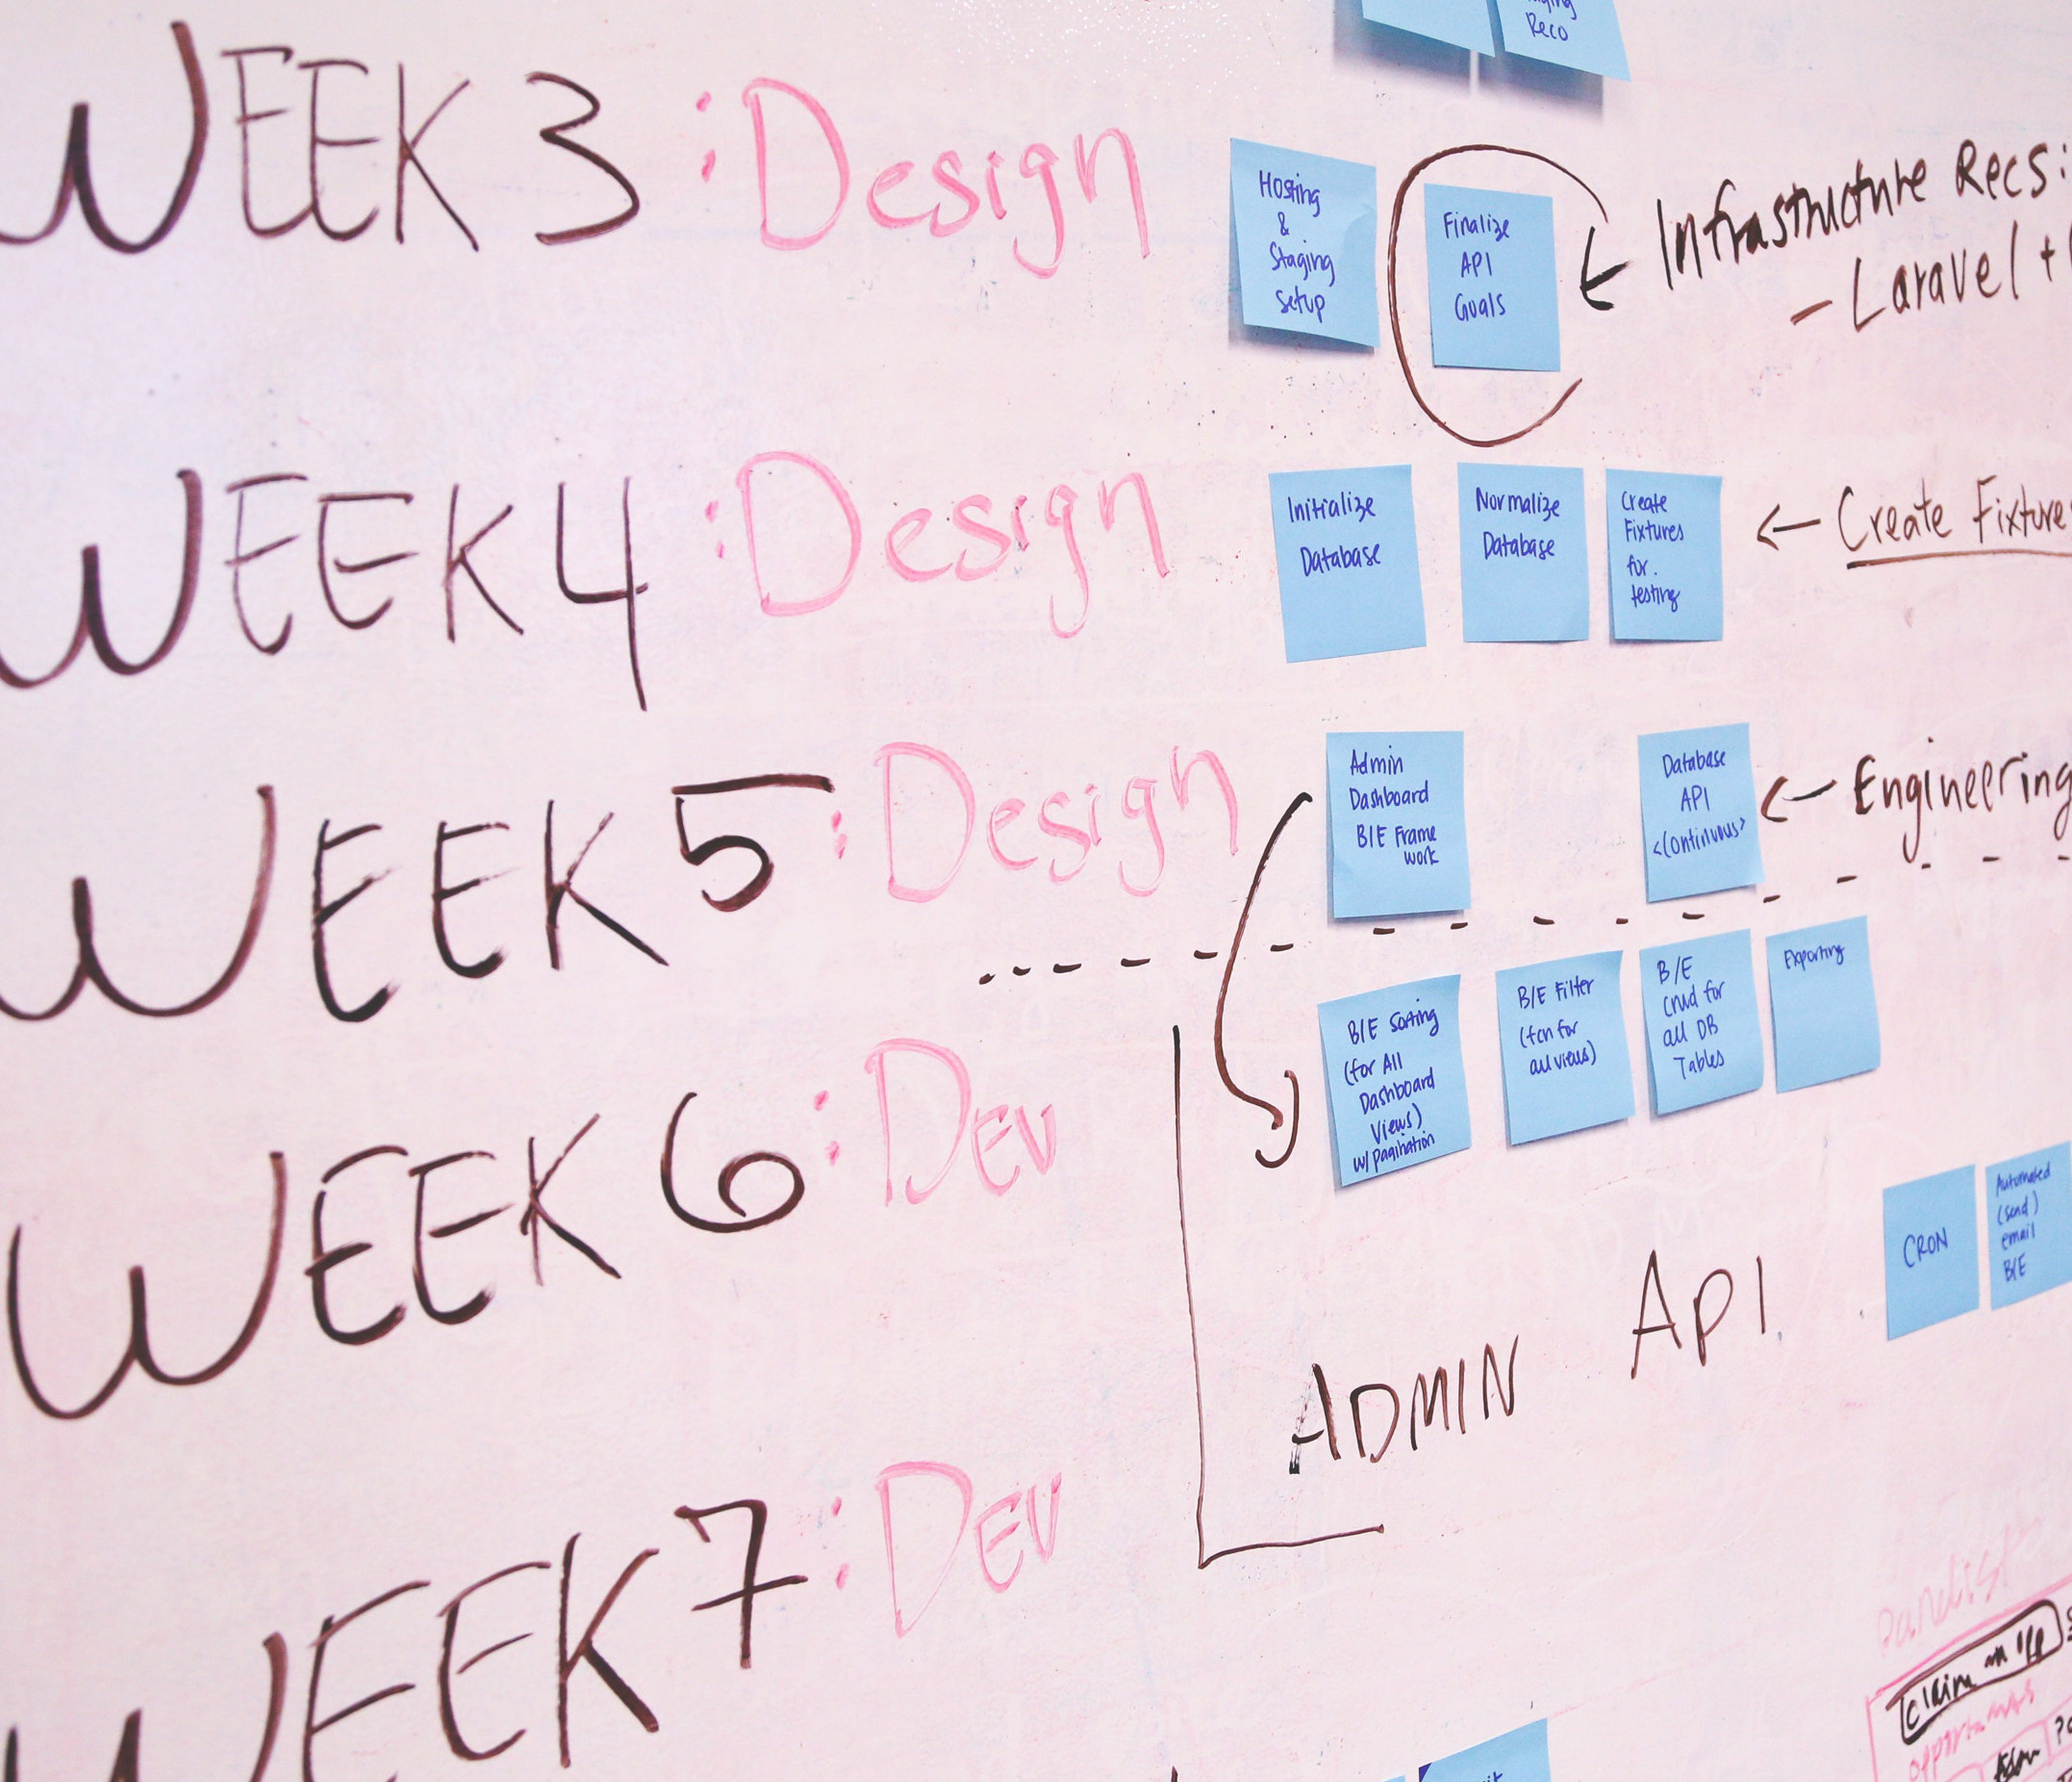 Reco
WEEK 3 : Design
Hosting
&
Staging
Setup
Finalize
API
Goals
Infrastructure Recs:
- Laravel +
WEEK 4 : Design
Initialize
Database
Normalize
Database
Create
Fixtures
for.
testing
← Create Fixture
WEEK 5 : Design
Admin
Dashboard
B/E Frame
work
Database
API
<Continuous>
← Engineering
WEEK 6 : DEV
B/E Sorting
(for All
Dashboard
Views)
w/ pagination
B/E Filter
(fcn for
all views)
B/E
Crud for
all DB
Tables
Exporting
CRON
Automated
(send)
email
B/E
ADMIN API
WEEK 7 : DEV
Panelist
Claim